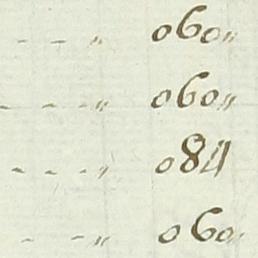 - - „ 060„
- - - „ 060„
- - - „ 084
- - „ 060„